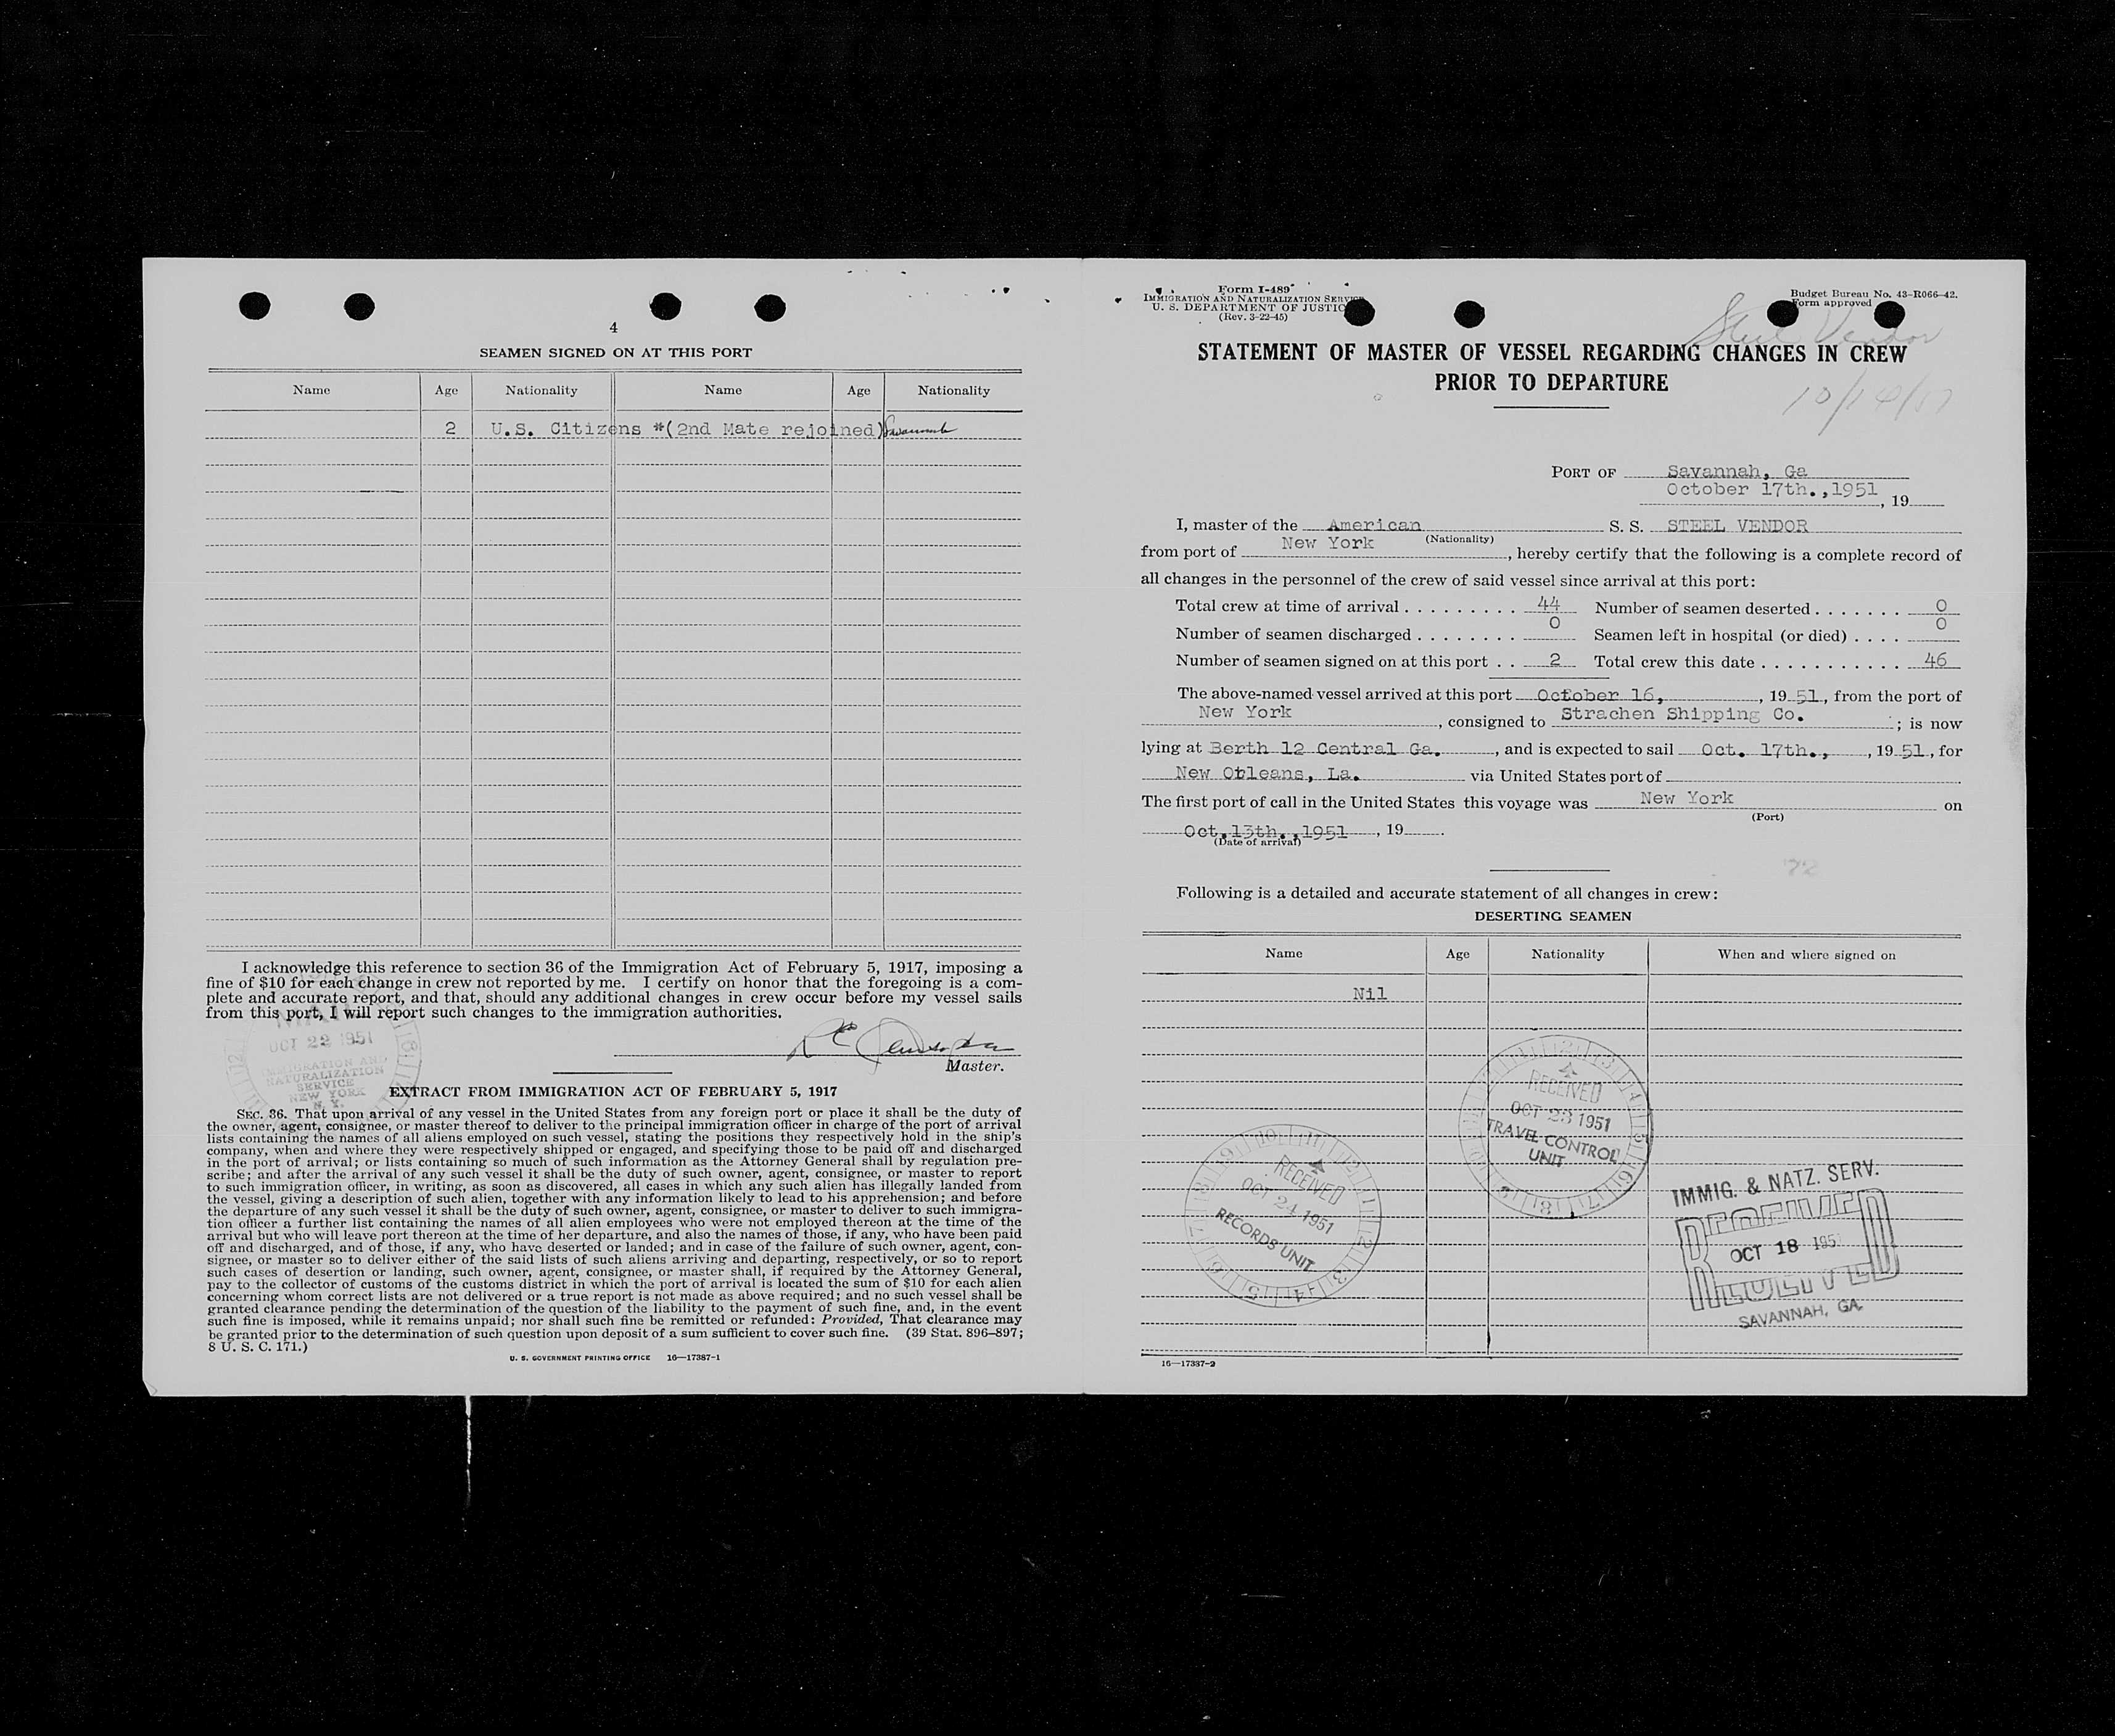 4
SEAMEN SIGNED ON AT THIS PORT
Name Age Nationality Name Age Nationality
2 U.S. Citizens *(2nd Mate rejoined) Savannah
I acknowledge this reference to section 36 of the Immigration Act of February 5, 1917, imposing a
fine of $10 for each change in crew not reported by me. I certify on honor that the foregoing is a com-
plete and accurate report, and that, should any additional changes in crew occur before my vessel sails
from this port, I will report such changes to the immigration authorities.
OCT 22 1951
IMMIGRATION AND
NATURALIZATION
SERVICE
NEW YORK
N. Y.
Master.
EXTRACT FROM IMMIGRATION ACT OF FEBRUARY 5, 1917
SEC. 36. That upon arrival of any vessel in the United States from any foreign port or place it shall be the duty of
the owner, agent, consignee, or master thereof to deliver to the principal immigration officer in charge of the port of arrival
lists containing the names of all aliens employed on such vessel, stating the positions they respectively hold in the ship's
company, when and where they were respectively shipped or engaged, and specifying those to be paid off and discharged
in the port of arrival; or lists containing so much of such information as the Attorney General shall by regulation pre-
scribe; and after the arrival of any such vessel it shall be the duty of such owner, agent, consignee, or master to report
to such immigration officer, in writing, as soon as discovered, all cases in which any such alien has illegally landed from
the vessel, giving a description of such alien, together with any information likely to lead to his apprehension; and before
the departure of any such vessel it shall be the duty of such owner, agent, consignee, or master to deliver to such immigra-
tion officer a further list containing the names of all alien employees who were not employed thereon at the time of the
arrival but who will leave port thereon at the time of her departure, and also the names of those, if any, who have been paid
off and discharged, and of those, if any, who have deserted or landed; and in case of the failure of such owner, agent, con-
signee, or master so to deliver either of the said lists of such aliens arriving and departing, respectively, or so to report
such cases of desertion or landing, such owner, agent, consignee, or master shall, if required by the Attorney General,
pay to the collector of customs of the customs district in which the port of arrival is located the sum of $10 for each alien
concerning whom correct lists are not delivered or a true report is not made as above required; and no such vessel shall be
granted clearance pending the determination of the question of the liability to the payment of such fine, and, in the event
such fine is imposed, while it remains unpaid; nor shall such fine be remitted or refunded: Provided, That clearance may
be granted prior to the determination of such question upon deposit of a sum sufficient to cover such fine. (39 Stat. 896–897;
8 U. S. C. 171.)
U. S. GOVERNMENT PRINTING OFFICE 16—17387-1
Form I-489
IMMIGRATION AND NATURALIZATION SERVICE
U. S. DEPARTMENT OF JUSTIC
(Rev. 3-22-45)
Budget Bureau No. 43-R066-42.
Form approved
Steel Vendor
STATEMENT OF MASTER OF VESSEL REGARDING CHANGES IN CREW
PRIOR TO DEPARTURE
PORT OF Savannah, Ga
October 17th.,1951, 19
I, master of the American S. S. STEEL VENDOR
(Nationality)
from port of New York, hereby certify that the following is a complete record of
all changes in the personnel of the crew of said vessel since arrival at this port:
Total crew at time of arrival . . . . . . . . . 44 Number of seamen deserted . . . . . . . 0
Number of seamen discharged . . . . . . . . 0 Seamen left in hospital (or died) . . . . 0
Number of seamen signed on at this port . . 2 Total crew this date . . . . . . . . . . . 46
The above-named vessel arrived at this port October 16, , 19 51, from the port of
New York, consigned to Strachen Shipping Co. ; is now
lying at Berth 12 Central Ga. , and is expected to sail Oct. 17th., , 19 51, for
New Orleans, La. via United States port of
The first port of call in the United States this voyage was New York on
(Port)
Oct.13th.,1951, 19 .
(Date of arrival)
72
Following is a detailed and accurate statement of all changes in crew:
DESERTING SEAMEN
Name Age Nationality When and where signed on
Nil
RECEIVED
OCT 23 1951
TRAVEL CONTROL
UNIT
RECEIVED
OCT 24 1951
RECORDS UNIT
IMMIG. & NATZ. SERV.
RECEIVED
OCT 18 195
RECEIVED
SAVANNAH, GA.
16—17387-2